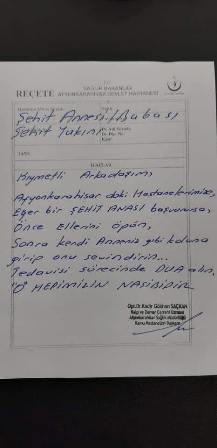 T.C.
SAĞLIK BAKANLIĞI
REÇETE AFYONKARAHİSAR DEVLET HASTANESİ
Şehit Annesi/Babası
Şehit Yakını
TANI:
İLAÇLAR
Kıymetli Arkadaşım,
Afyonkarahisar daki Hastanelerimize,
Eğer bir ŞEHİT ANASI başvurursa,
Önce Ellerini öpün,
Sonra kendi Anneniz gibi koluna
girip onu sevindirin...
Tedavisi sürecinde DUA alın,
"O" HEPİMİZİN NASİBİDİR
Opr.Dr. Kadir Gökhan SAÇKAN
Kalp ve Damar Cerrahi Uzmanı
Afyonkarahisar Sağlık Müdürlüğü
Kamu Hastaneleri Başkanı